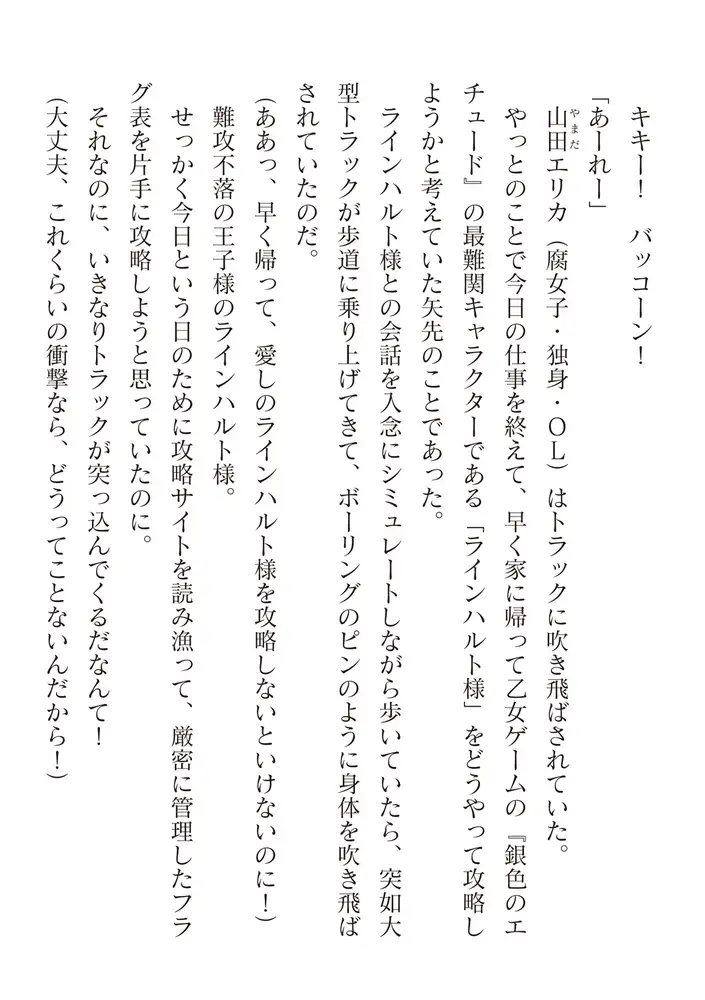 キキー！　バッコーン！
「あーれー」
山田エリカ（腐女子・独身・ＯＬ）はトラックに吹き飛ばされていた。
やまだ
やっとのことで今日の仕事を終えて、早く家に帰って乙女ゲームの『銀色のエ
チュード』の最難関キャラクターである「ラインハルト様」をどうやって攻略し
ようかと考えていた矢先のことであった。
ラインハルト様との会話を入念にシミュレートしながら歩いていたら、突如大
型トラックが歩道に乗り上げてきて、ボーリングのピンのように身体を吹き飛ば
されていたのだ。
（ああっ、早く帰って、愛しのラインハルト様を攻略しないといけないのに！）
難攻不落の王子様のラインハルト様。
せっかく今日という日のために攻略サイトを読み漁って、厳密に管理したフラ
グ表を片手に攻略しようと思っていたのに。
それなのに、いきなりトラックが突っ込んでくるだなんて！
（大丈夫、これくらいの衝撃なら、どうってことないんだから！）